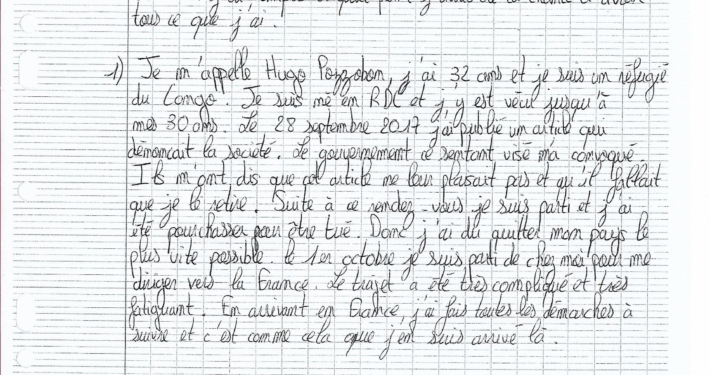 tous ce que j'ai.
1) Je m'appelle Hugo Pozzobon, j'ai 32 ans et je suis un réfugié
du Congo. Je suis né en RDC et j'y est vécu jusqu'à
mes 30 ans. Le 28 septembre 2017 j'ai publié un article qui
dénoncait la société. Le gouvernement ce sentant visé m'a convoqué.
Ils m'ont dis que cet article ne leur plaisait pas et qu'il fallait
que je le retire. Suite à ce rendez-vous je suis parti et j'ai
été pourchasser pour être tué. Donc j'ai du quitter mon pays le
plus vite possible. Le 1er octobre je suis parti de chez moi pour me
diriger vers la France. Le trajet a été très compliqué et très
fatiguant. En arrivant en France, j'ai fais toutes les démarches à
suivre et c'est comme cela que j'en suis arrivé là.